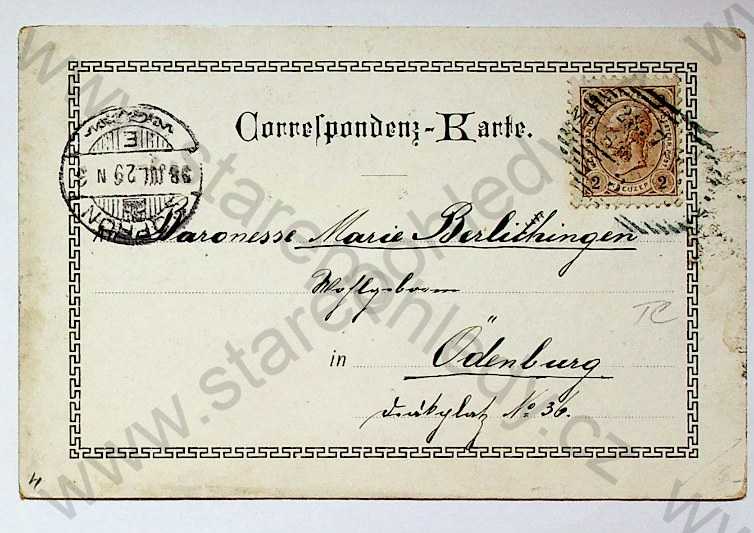 Correspondenz-Karte.
2 KREUZER 2
SOPRON
98 JUL. 29 N
E
An Baronesse Marie Berlichingen
Wohlgeboren
in Ödenburg
No 36.
TC
www.starepohledy.cz